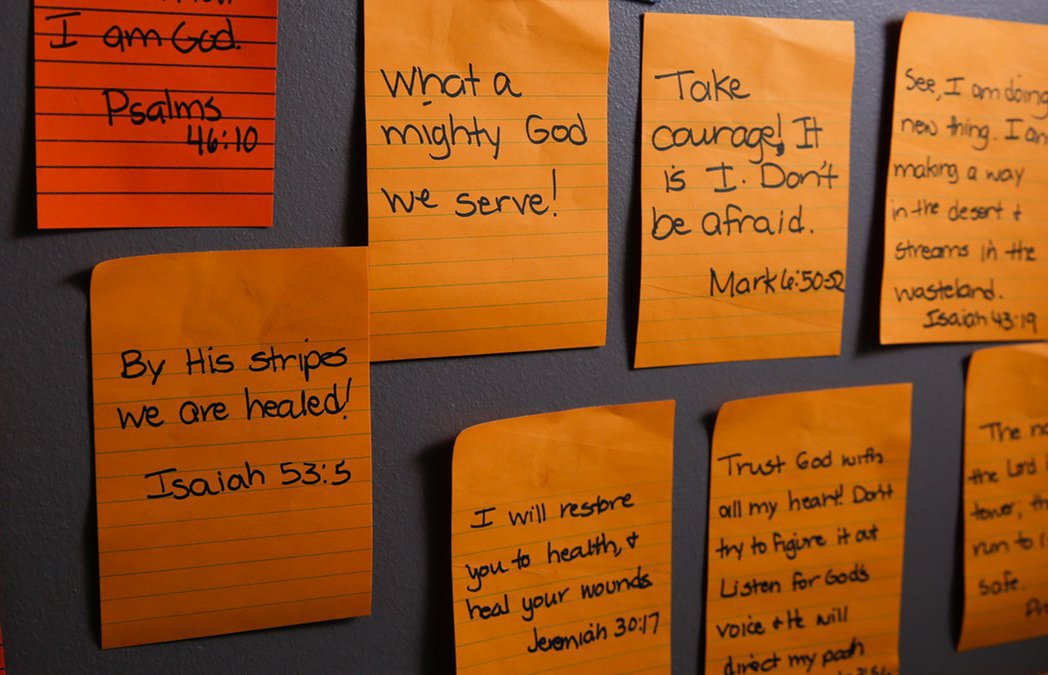 I am God.
Psalms
46:10
What a
mighty God
we serve!
Take
courage! It
is I. Don't
be afraid.
Mark 6:50-52
See, I am doing
new thing. I am
making a way
in the desert &
streams in the
wasteland.
Isaiah 43:19
By His stripes
we are healed!
Isaiah 53:5
I will restore
you to health, &
heal your wounds
Jeremiah 30:17
Trust God with
all my heart! Don't
try to figure it out
Listen for God's
voice & He will
direct my path
The
the Lord
tower; the
run to
safe.